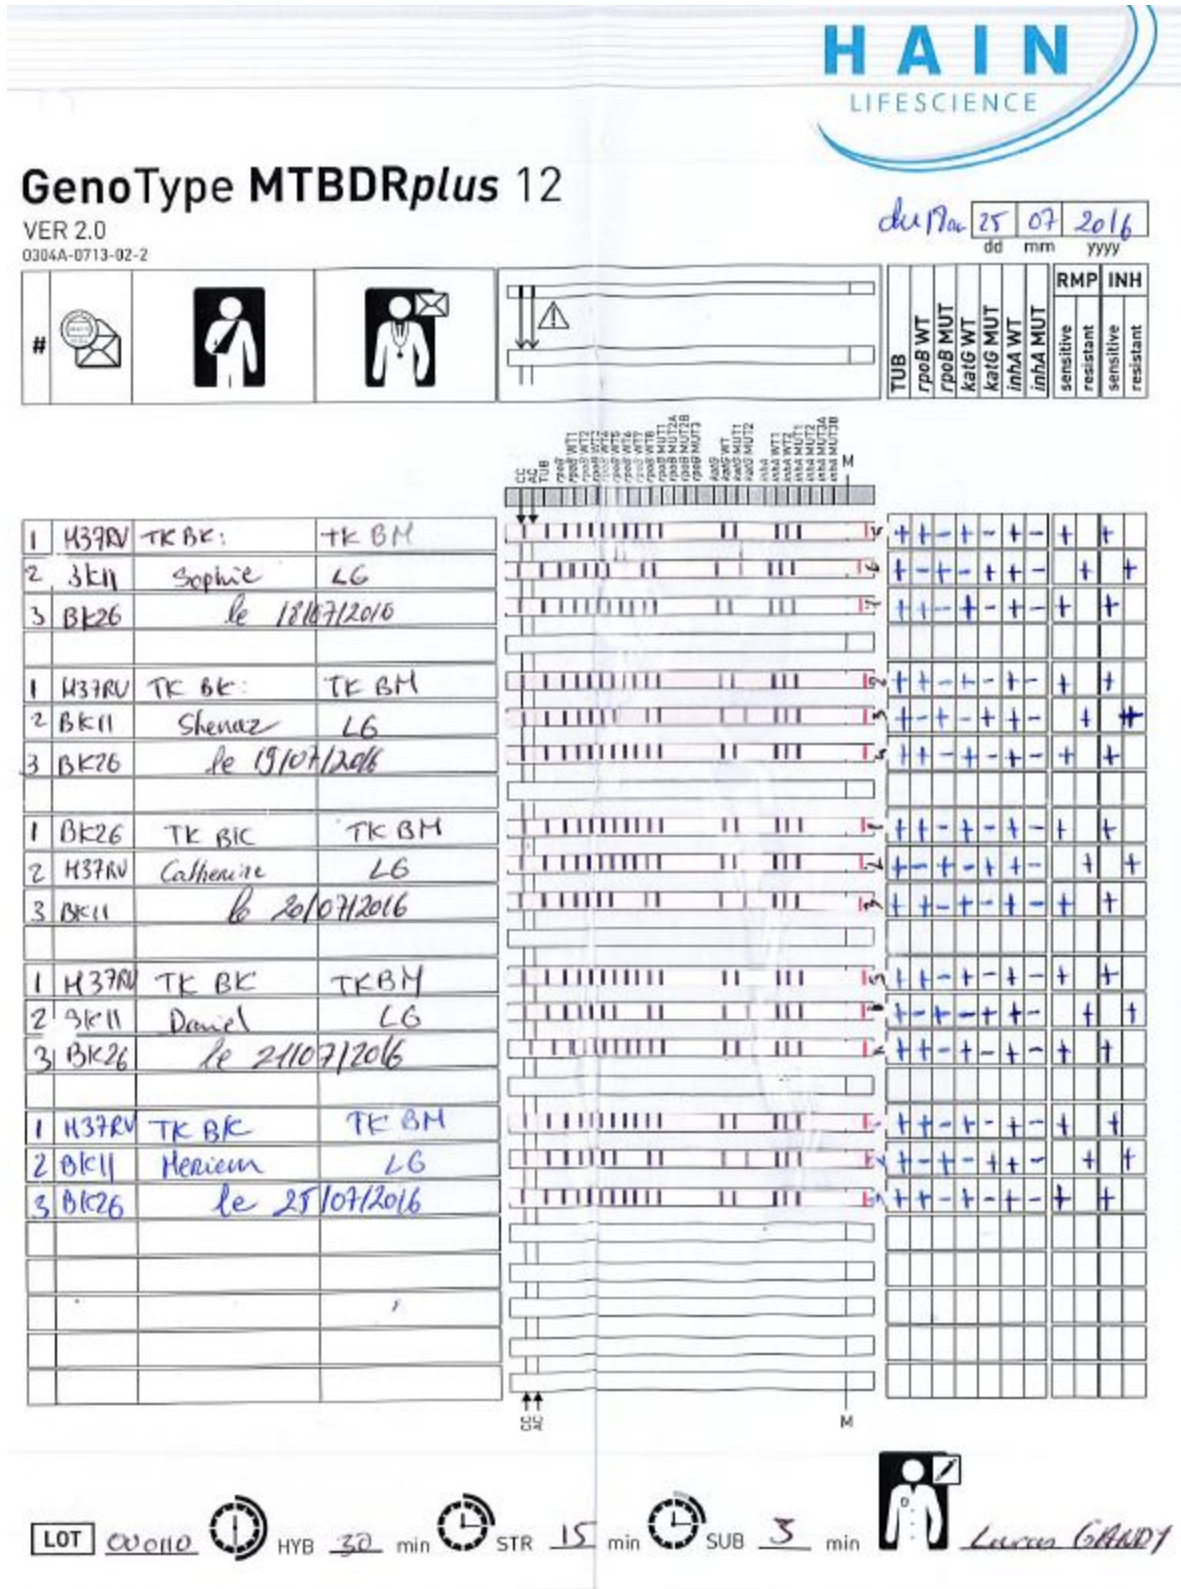 HAIN
LIFESCIENCE
GenoType MTBDRplus 12
VER 2.0
0304A-0713-02-2
25 07 2016
dd mm yyyy
#
TUB
rpoB WT
rpoB MUT
katG WT
katG MUT
inhA WT
inhA MUT
RMP INH
sensitive
resistant
sensitive
resistant
CC
AC
TUB
rpoB
rpoB WT1
rpoB WT2
rpoB WT3
rpoB WT4
rpoB WT5
rpoB WT6
rpoB WT7
rpoB WT8
rpoB MUT1
rpoB MUT2A
rpoB MUT2B
rpoB MUT3
katG
katG WT
katG MUT1
katG MUT2
inhA
inhA WT1
inhA WT2
inhA MUT1
inhA MUT2
inhA MUT3A
inhA MUT3B
M
1 H37RV TK BK: TK BM + + - + - + - + +
2 BK11 Sophie LG + - + - + + - + +
3 BK26 le 18/07/2016 + + - + - + - + +
1 H37RV TK BK: TK BM + + - + - + - + +
2 BK11 Shenaz LG + - + - + + - + +
3 BK26 le 19/07/2016 + + - + - + - + +
1 BK26 TK BK TK BM + + - + - + - + +
2 H37RV Catherine LG + - + - + + - + +
3 BK11 le 20/07/2016 + + - + - + - + +
1 H37RV TK BK TKBM + + - + - + - + +
2 BK11 Daniel LG + - + - + + - + +
3 BK26 le 21/07/2016 + + - + - + - + +
1 H37RV TK BK TK BM + + - + - + - + +
2 BK11 Meriem LG + - + - + + - + +
3 BK26 le 25/07/2016 + + - + - + - + +
CC
AC
M
LOT HYB 30 min STR 15 min SUB 3 min Lucas GANDY